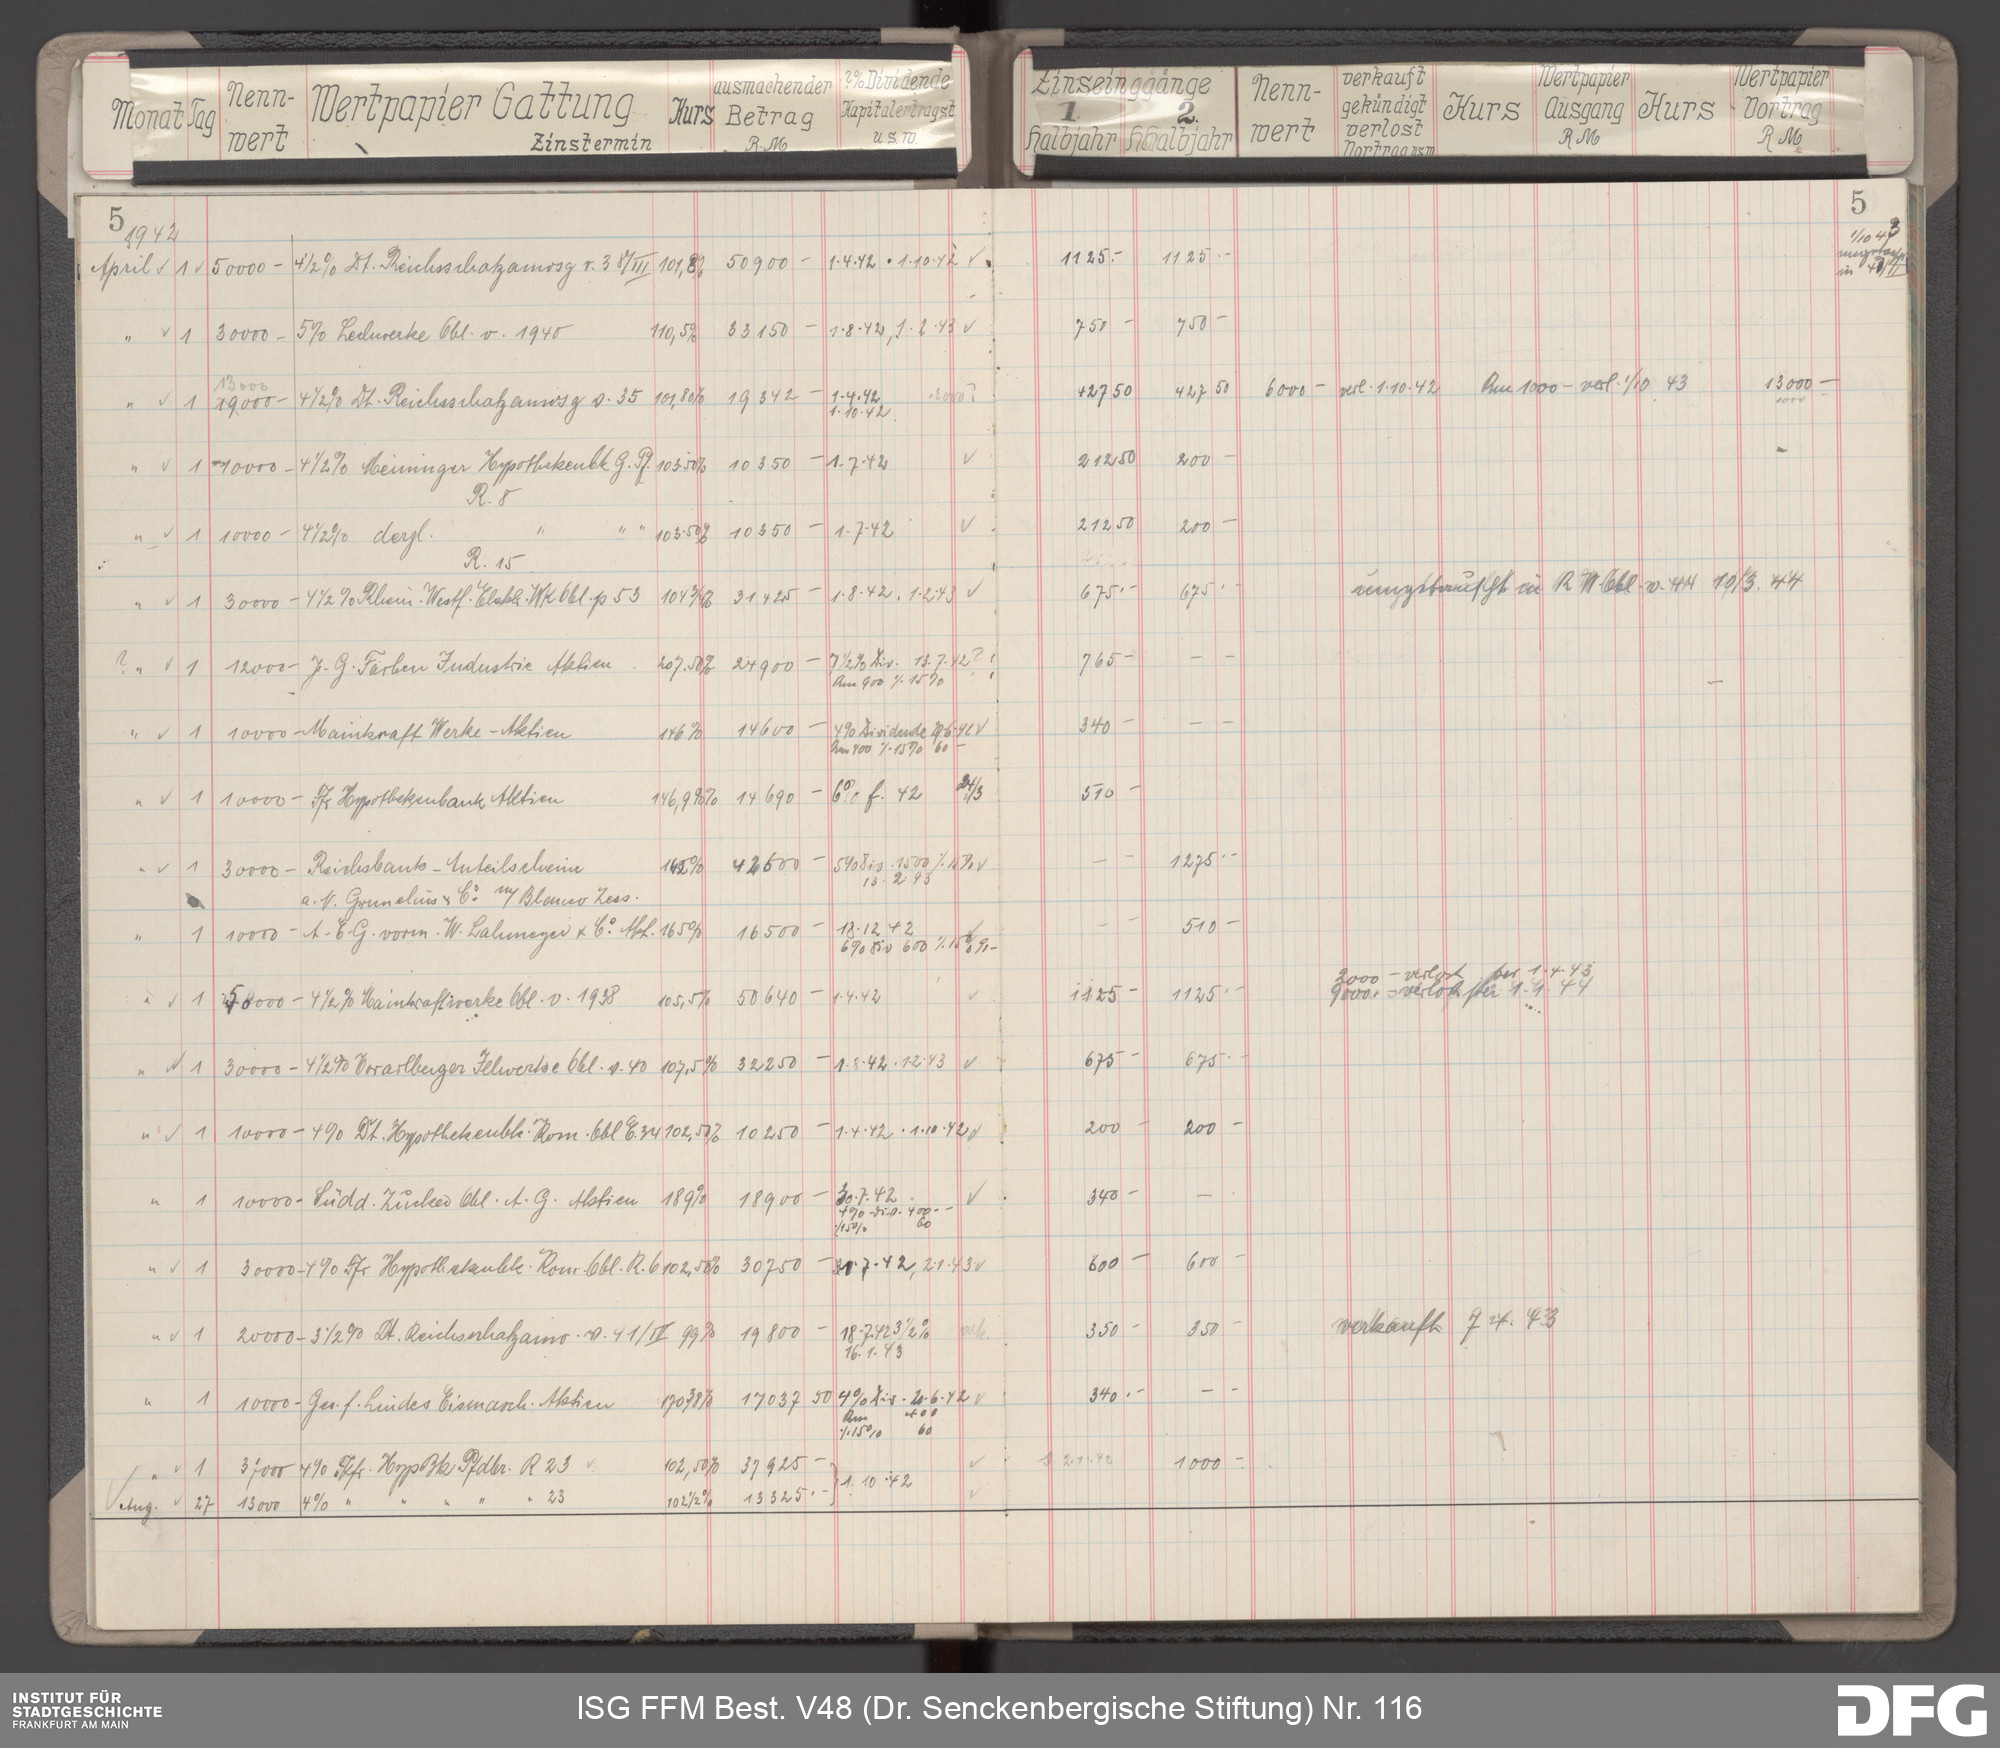 Monat Tag Nenn-wert Wertpapier Gattung Zinstermin Kurs ausmachender Betrag R.M. 2% Dividende Kapitalertragst u.s.w.
Zinseinggänge 1. Halbjahr 2. Halbjahr Nenn-wert verkauft gekündigt verlost Vortrag usw Kurs Wertpapier Ausgang RM Kurs Wertpapier Vortrag RM
5 5
1942
April √ 1 √ 50000 – 4½% Dt. Reichsschatzanwsg v. 38/III 101,8% 50900 – 1.4.42 . 1.10.42 √ 1125.– 1125.– 1/10 43
in
" √ 1 30000 – 5% Lechwerke Obl. v. 1940 110,5% 33150 – 1.8.42, 1.2.43 √ 750 – 750 –
13000
" √ 1 19000 – 4½% Dt. Reichsschatzanwsg v. 35 101,80% 19342 – 1.4.42 427 50 427 50 6000 – verl. 1.10.42 Rm 1000 – verl. 1/10 43 13000 –
1.10.42 1000
" √ 1 10000 – 4½% Meininger Hypothekenbk G. Pf. 103.50% 10350 – 1.7.42 √ 212 50 200 –
R. 8
" √ 1 10000 – 4½% dergl. " " " 103.50% 10350 – 1.7.42 √ 212 50 200 –
R. 15
" √ 1 30000 – 4½% Rhein. Westf. Elektr. Wk Obl. p 53 104¾% 31425 – 1.8.42 . 1.2.43 √ 675.– 675.– umgetauscht in R W Obl. v. 44 10/3. 44
? " √ 1 12000 – J. G. Farben Industrie Aktien 207.50% 24900 – 7½% Div. 13.7.42 ? 765 – – –
Rm 900 ./. 15%
" √ 1 10000 – Mainkraft Werke – Aktien 146% 14600 – 4% Dividende 6.42 √ 340 – – –
Rm 400 ./. 15% 60 –
" √ 1 10000 – Ffr Hypothekenbank Aktien 146,9% 14690 – 6% f. 42 24/3 510 –
" √ 1 30000 – Reichsbank – Anteilscheine 145% 42600 – 5% Div. 1500 ./. 15% √ – – 1275.–
13. 2 43
a. N. Grunelius & Co. m/ Blanco Zess.
" 1 10000 – A. E. G. vorm. W. Lahmeyer & Co. Akt. 165% 16500 – 18.12.42 √ – – 510 –
6% Div 600 ./. 15% 91–
" √ 1 50000 – 4½% Mainkraftwerke Obl. v. 1938 105,5% 50640 – 1.4.42 √ 1125 – 1125.– 2000 – verlost per 1.4.43
9000.– verlost per 1.4.44
" √ 1 30000 – 4½% Vorarlberger Illwerke Obl. v. 40 107,5% 32250 – 1.8.42 . 1.2.43 √ 675 – 675.–
" √ 1 10000 – 4% Dt. Hypothekenbk. Kom. Obl E. 34 102,50% 10250 – 1.4.42 . 1.10.42 √ 200 – 200 –
" 1 10000 – Südd. Zucker Obl. A. G. Aktien 189% 18900 – 30.7.42 √ 340 – –
4% Div. 400.–
./.15% 60
" √ 1 30000 – 4% Ffr Hypothekenbk. Kom. Obl. R. 6 102,50% 30750 – 7.42, 2.1.43 √ 600 – 600 –
" √ 1 20000 – 3½% Dt. Reichsschatzanw. v. 41/IV 99% 19800 – 18.7.42 3½% 350 – 350 – verkauft 7.4.43
16.1.43
" 1 10000 – Ges. f. Lindes Eismasch. Aktien 170 3/8% 17037 50 4% Div. 20.6.42 √ 340.– – –
Rm 400
./.15% 60
" √ 1 37000 4% Ffr. Hyp Bk Pfdbr. R 23 √ 102,50% 37925 – 1.10.42 √ 1000 –
√ Aug. √ 27 13000 4% " " " " " 23 102½% 13325.– √
INSTITUT FÜR
STADTGESCHICHTE
FRANKFURT AM MAIN
ISG FFM Best. V48 (Dr. Senckenbergische Stiftung) Nr. 116
DFG